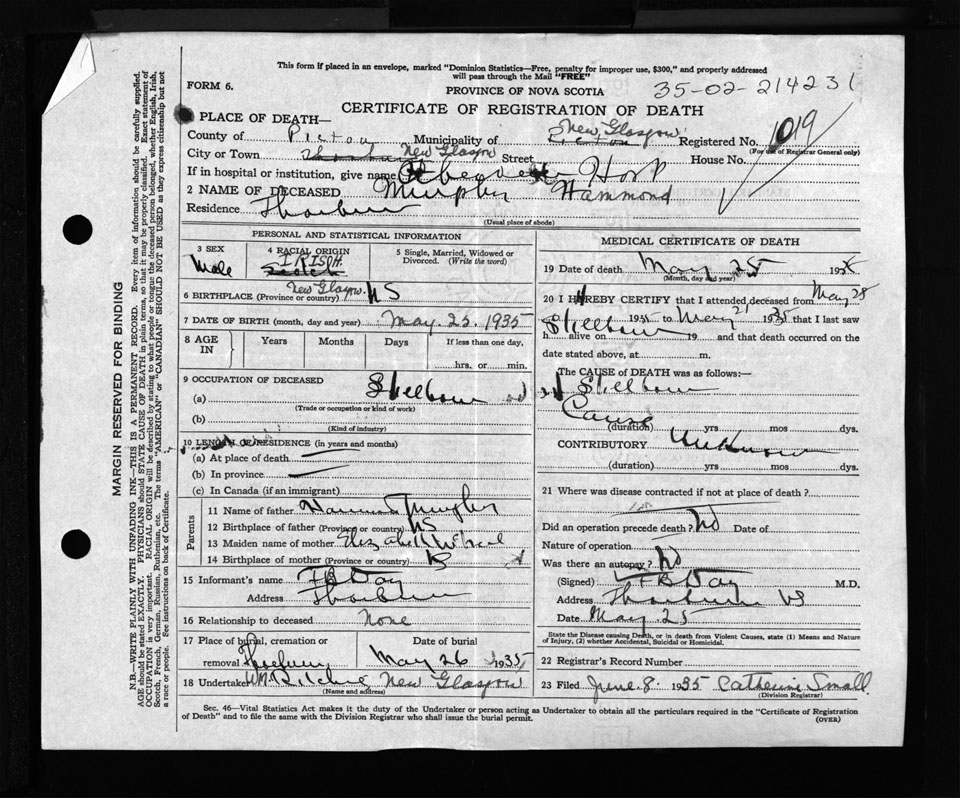 This form if placed in an envelope, marked "Dominion Statistics—Free, penalty for improper use, $300," and properly addressed
will pass through the Mail "FREE"
FORM 6.
PROVINCE OF NOVA SCOTIA
35-02-214231
CERTIFICATE OF REGISTRATION OF DEATH
PLACE OF DEATH—
County of Pictou Municipality of New Glasgow Registered No. 1019
(For use of Registrar General only)
City or Town New Glasgow Street House No.
If in hospital or institution, give name Aberdeen Hosp
2 NAME OF DECEASED Murphy Hammond
Residence Thorburn
(Usual place of abode)
PERSONAL AND STATISTICAL INFORMATION
3 SEX Male
4 RACIAL ORIGIN IRISH. Scotch
5 Single, Married, Widowed or Divorced. (Write the word)
6 BIRTHPLACE (Province or country) New Glasgow NS
7 DATE OF BIRTH (month, day and year) May. 25. 1935
8 AGE IN Years Months Days If less than one day, hrs. or min.
9 OCCUPATION OF DECEASED
(a) Stillborn
(Trade or occupation or kind of work)
(b)
(Kind of industry)
10 LENGTH OF RESIDENCE (in years and months)
(a) At place of death
(b) In province
(c) In Canada (if an immigrant)
Parents
11 Name of father Murphy
12 Birthplace of father (Province or country) NS
13 Maiden name of mother Elizabeth
14 Birthplace of mother (Province or country) NS
15 Informant's name Day
Address Thorburn
16 Relationship to deceased None
17 Place of burial, cremation or removal Thorburn Date of burial May 26 1935
18 Undertaker Wm Ritchie New Glasgow
(Name and address)
MEDICAL CERTIFICATE OF DEATH
19 Date of death May 25 193
(Month, day and year)
20 I HEREBY CERTIFY that I attended deceased from May 25
Stillborn 1935 to May 1935 that I last saw
h alive on 19 and that death occurred on the
date stated above, at m.
The CAUSE of DEATH was as follows:—
Stillborn
Cause
(duration) yrs mos dys.
CONTRIBUTORY Unknown
(duration) yrs mos dys.
21 Where was disease contracted if not at place of death?
Did an operation precede death? No Date of
Nature of operation
Was there an autopsy? No
(Signed) Day M.D.
Address Thorburn NS
Date May 25
State the Disease causing Death, or in death from Violent Causes, state (1) Means and Nature
of Injury, (2) whether Accidental, Suicidal or Homicidal.
22 Registrar's Record Number
23 Filed June 8. 1935 Catherine Small
(Division Registrar)
Sec. 46—Vital Statistics Act makes it the duty of the Undertaker or person acting as Undertaker to obtain all the particulars required in the "Certificate of Registration
of Death" and to file the same with the Division Registrar who shall issue the burial permit.
(OVER)
MARGIN RESERVED FOR BINDING
N.B.—WRITE PLAINLY WITH UNFADING INK—THIS IS A PERMANENT RECORD. Every item of information should be carefully supplied.
AGE should be stated EXACTLY. PHYSICIANS should STATE CAUSE OF DEATH in plain terms, so that it may be properly classified. Exact statement of
OCCUPATION is very important. RACIAL ORIGIN will be described by stating to what people or tongue the deceased person belonged, whether English, Irish,
Scotch, French, German, Russian, Ruthenian, etc. The terms "AMERICAN" or "CANADIAN" SHOULD NOT BE USED as they express citizenship but not
a race or people. See instructions on back of Certificate.